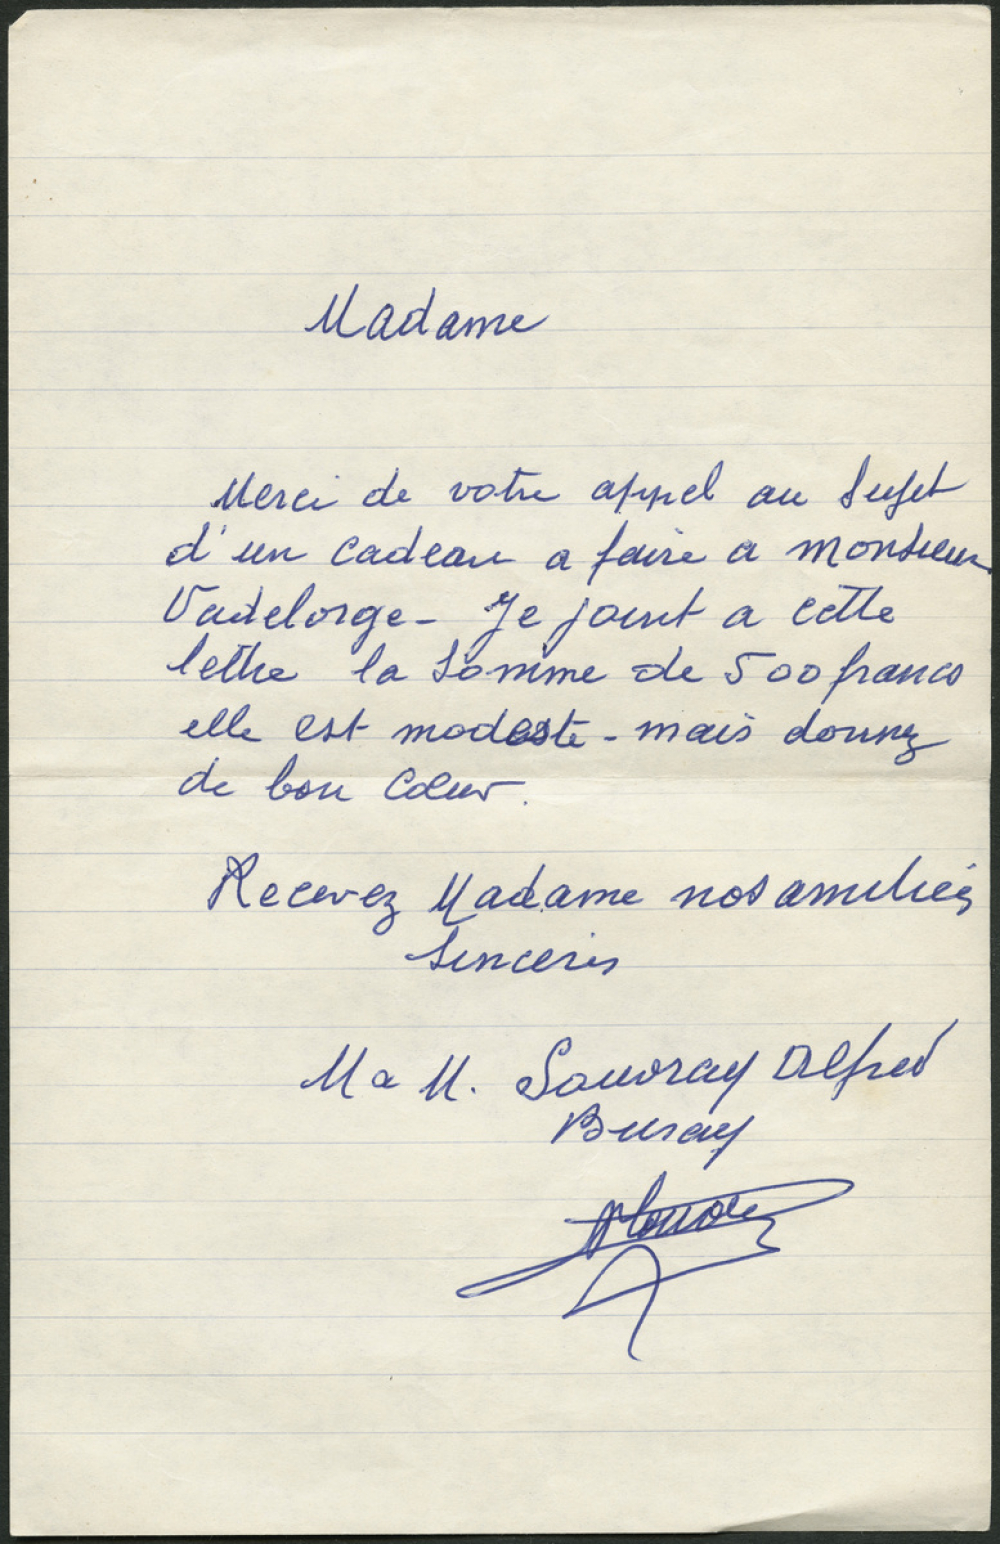 Madame
Merci de votre appel au sujet
d'un cadeau a faire a monsieur
Vadelorge - Je joint a cette
lettre la Somme de 500 francs
elle est modeste - mais donnez
de bon Cœur.
Recevez Madame nos amitiés
Sincères
M a M. Souvray Alfred
Buray